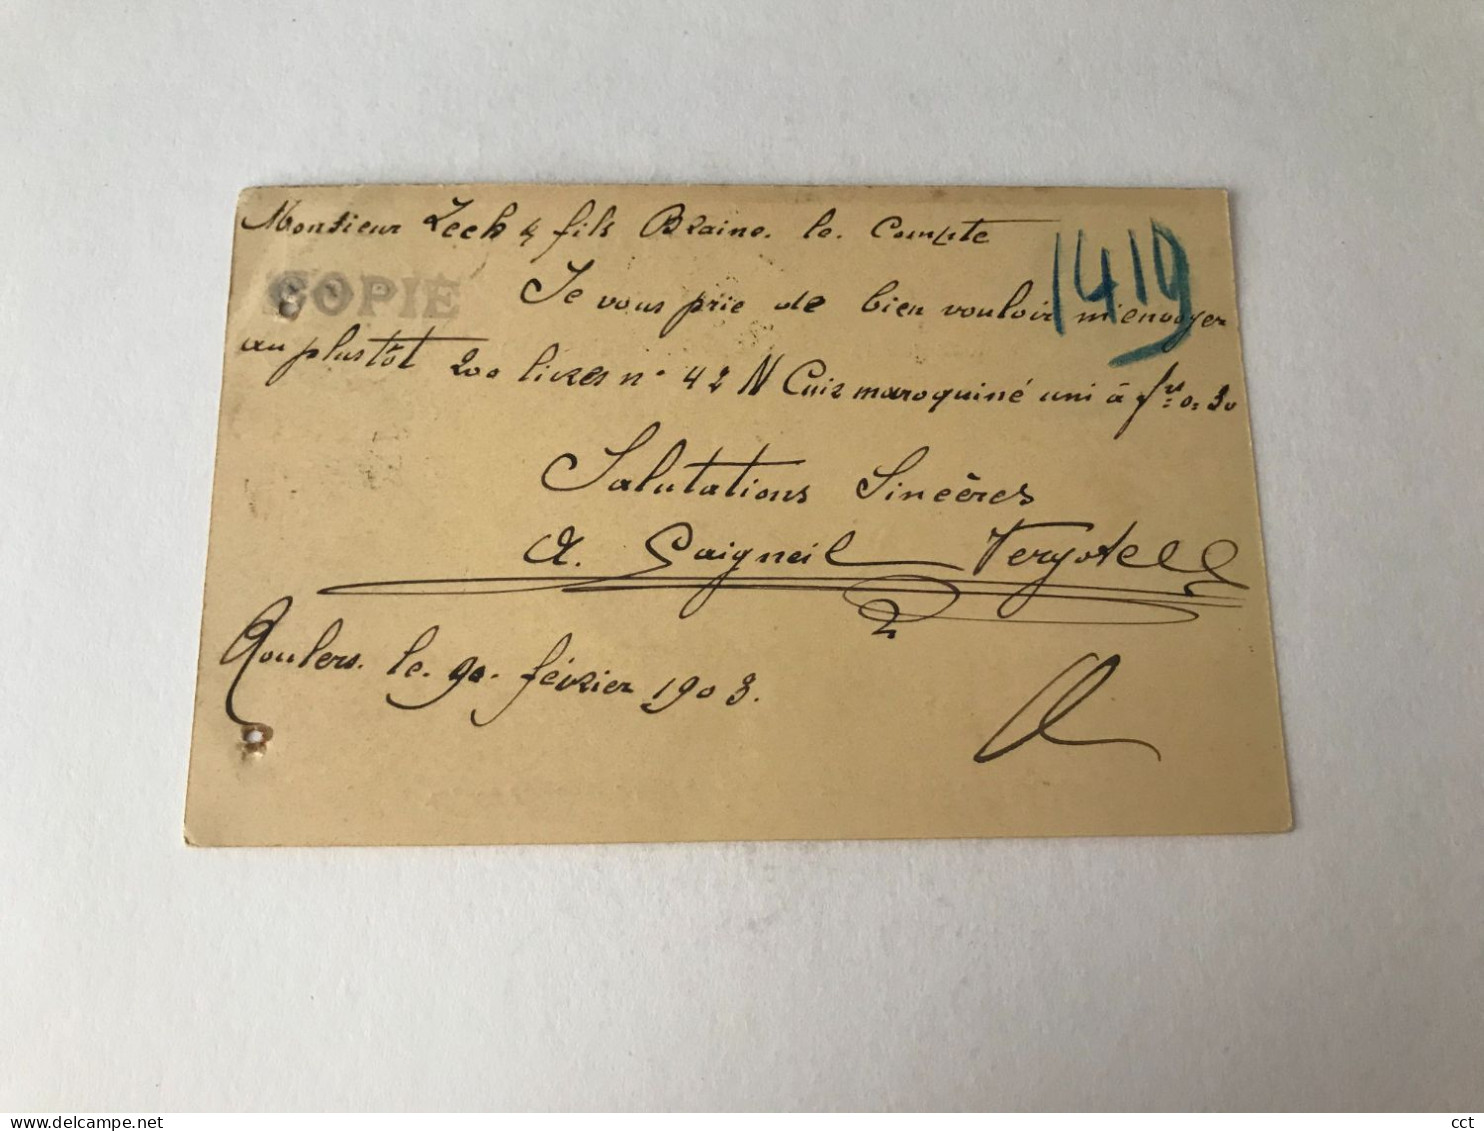 Monsieur Zech & fils Braine. le. Compte
1419
COPIE
Je vous prie de bien vouloir m'envoyer
au plustôt 200 livres n° 42 N Cuir maroquiné uni à frs 0.30
Salutations Sincères
A. Gaigneil
Roulers. le. 90. février 1903.
cct